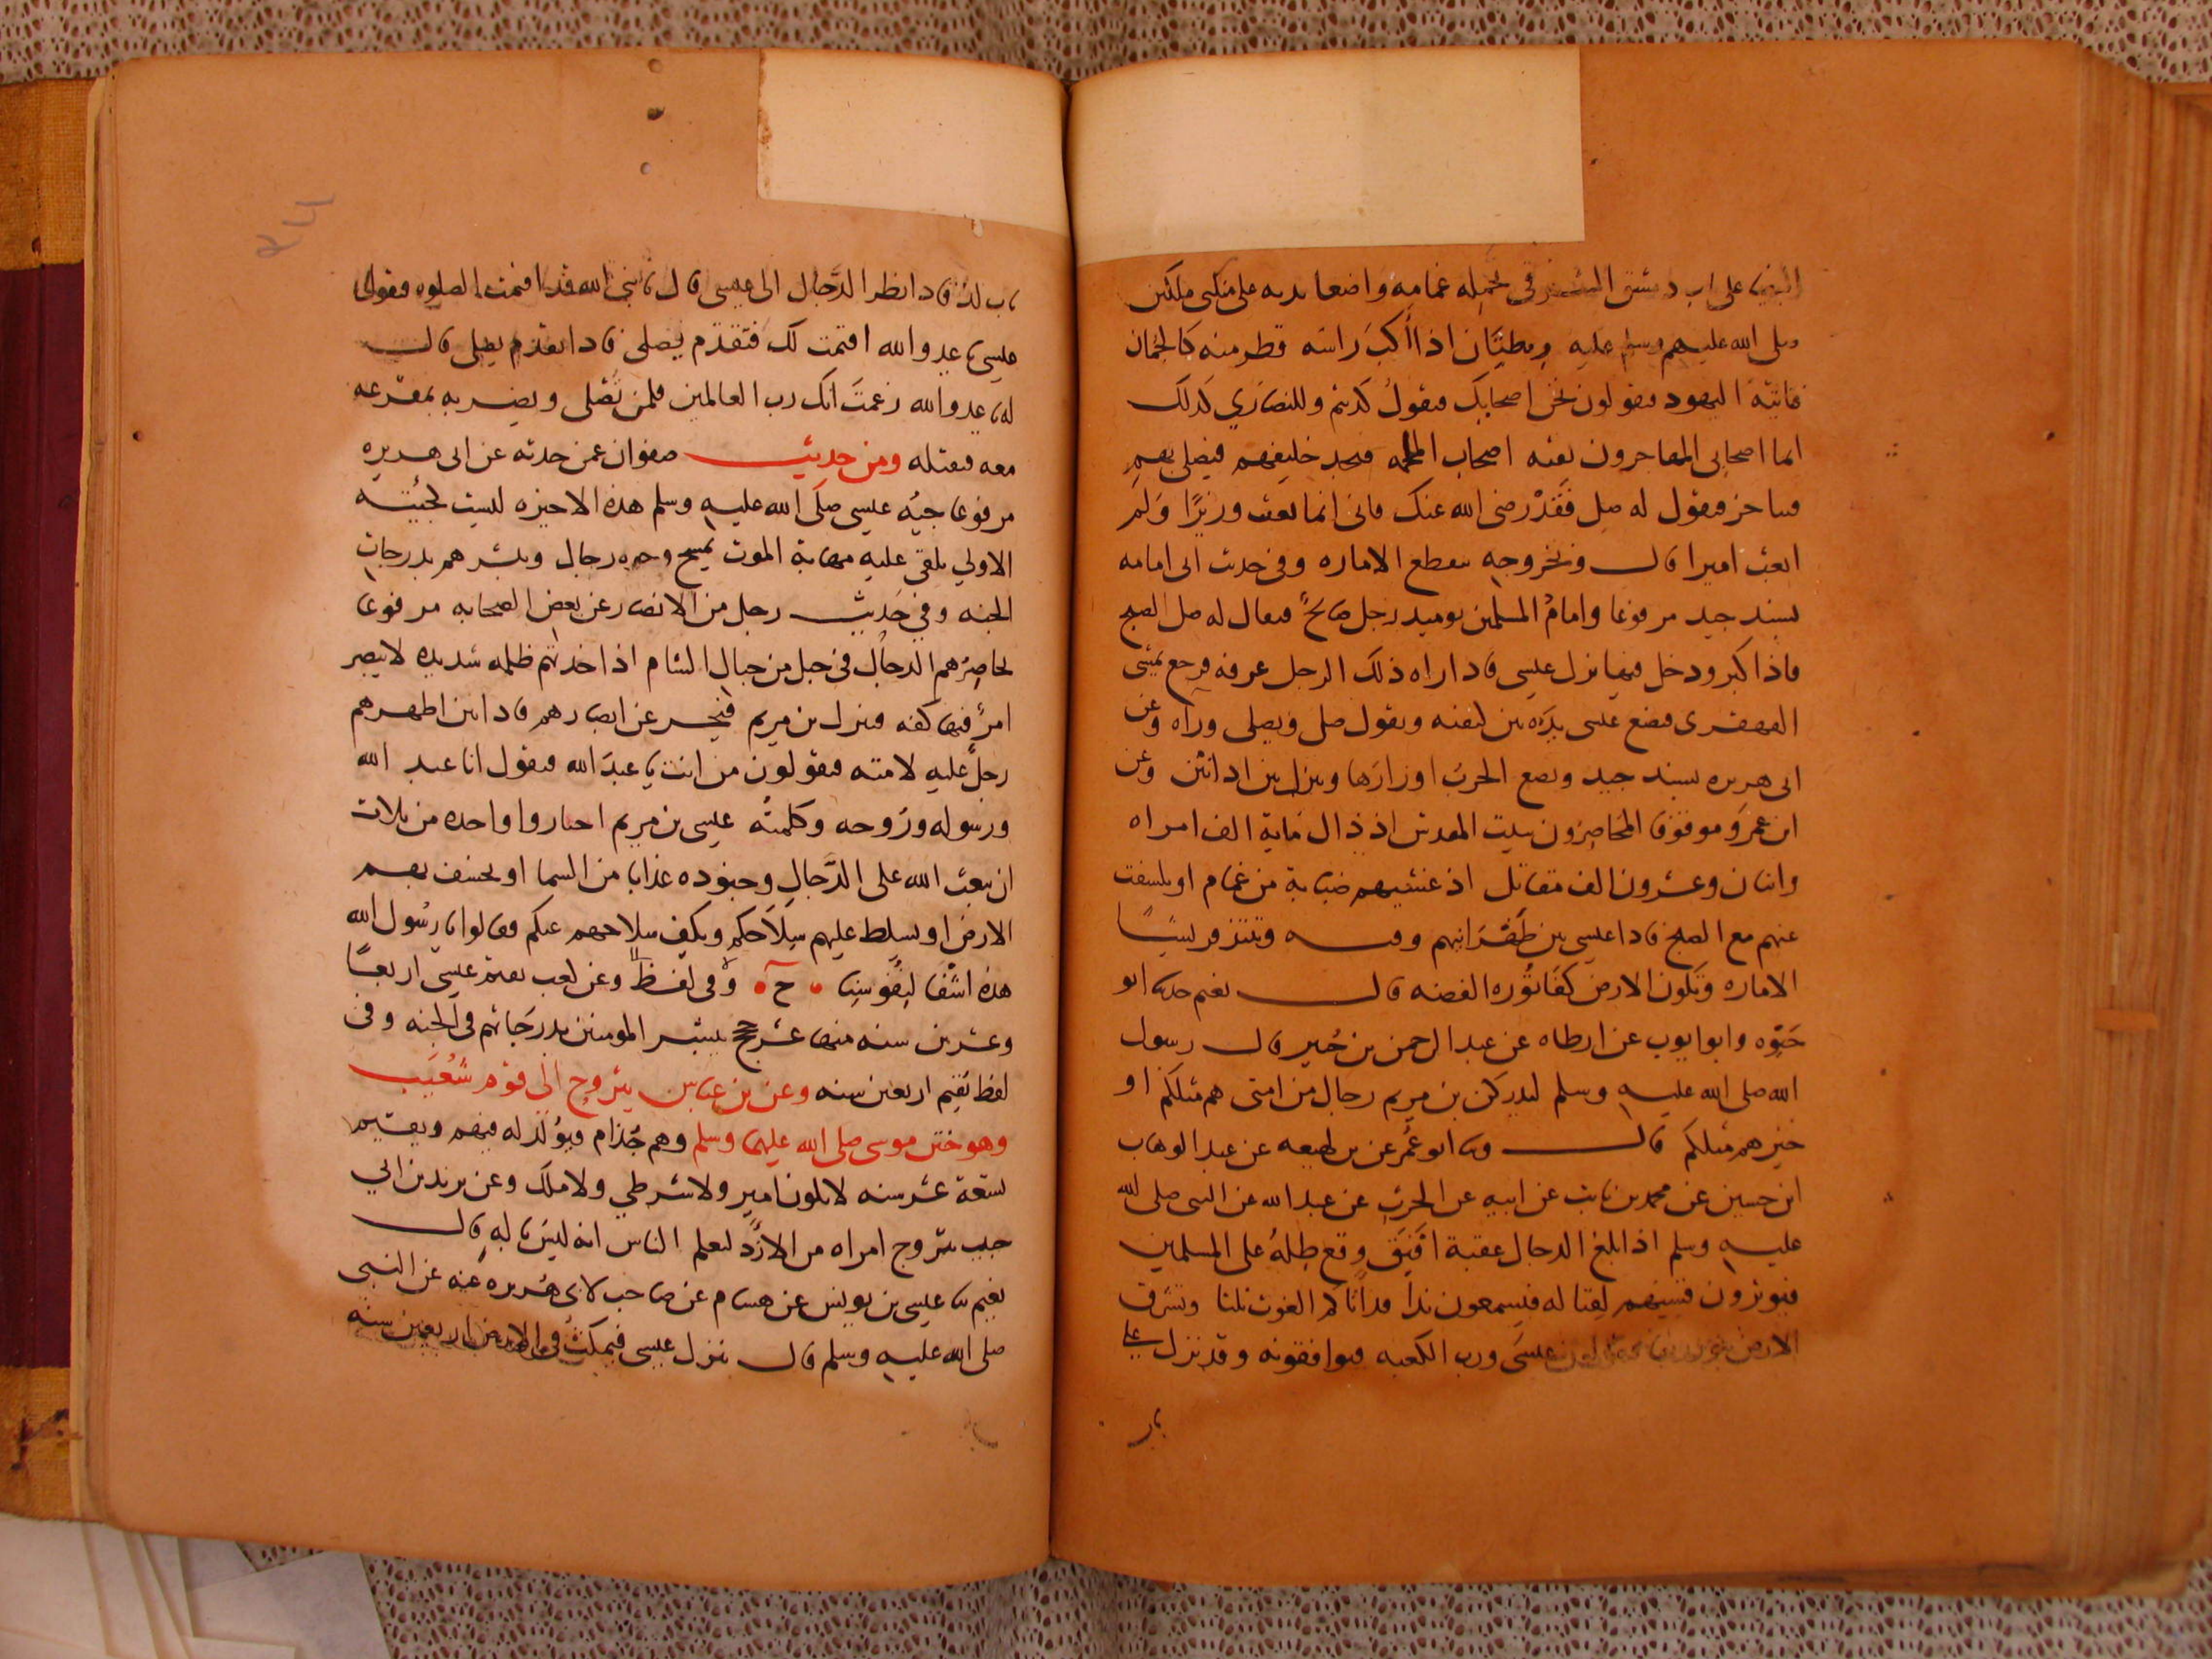 البيضا على باب دمشق الشرقي تحمله غمامه واضعا يديه على منكبي ملكين
صلى الله عليهم وسلم عليه ريطتان اذا أكب راسه قطر منه كالجمان
فاتيه اليهود فيقولون نحن اصحابك فيقول كذبتم وللنصاري كذلك
انما اصحابي المهاجرون بقيه اصحاب الملحمه فيجد خليفهم فيصلي بهم
فيتاخر فيقول له صل فقد رضى الله عنك فاني انما بعثت وزيرا ولم
ابعث اميرا قال وبخروجه تنقطع الاماره وفي حديث ابى امامه
بسند جيد مرفوعا وامام المسلمين يوميد رجل صالح فيقال له صل الصبح
فاذا كبر ودخل فيها نزل عيسى فاذا راه ذلك الرجل عرفه فرجع يمشى
القهقرى فيضع عيسى يده بين كتفيه ويقول صل ويصلى وراه وعن
ابى هريره بسند جيد وتضع الحرب اوزارها وينزل بين اذانين وعن
ابن عمرو موقوفا المحاصرون ببيت المقدس اذ ذاك ماية الف امراه
واثنان وعشرون الف مقاتل اذ غشيهم ضبابة من غمام اذ تكشفت
عنهم مع الصبح فاذا عيسى بين ظهرانيهم وفيه
الاماره وتكون الارض كفاثوره الفضه قال نعيم حدثنا ابو
حيوه وابو ايوب عن ارطاه عن عبد الرحمن بن جبير قال رسول
الله صلى الله عليه وسلم ليدركن بن مريم رجال من امتى هم مثلكم او
خيرهم مثلكم قال وثنا ابو عمر عن بن لهيعه عن عبد الوهاب
ابن حسين عن محمد بن ثابت عن ابيه عن الحرث عن عبد الله عن النبى صلى الله
عليه وسلم اذا بلغ الدجال عقبة افيق وقع ظله على المسلمين
فيوترون قسيهم لقتاله فيسمعون ندا قد اتاكم الغوث ثلثا وتشرق
الارض بنور ربها عيسى ورب الكعبه فيوافقونه وقد نزل على
باب
باب لد فاذا نظر الدجال الى عيسى قال يا نبي الله قد اقيمت الصلوه فيقول
عيسى يا عدو الله اقيمت لك فتقدم فصلى فاذا تقدم يصلى قال
له يا عدو الله زعمت انك رب العالمين فلمن تصلى ويضربه بمقرعه
معه فيقتله ومن حديث صفوان عمن حدثه عن ابى هريره
مرفوعا جيه عيسى صلى الله عليه وسلم هذه الاخيره ليست كجيئته
الاولي يلقى عليه مهابة الموت يمسح وجوه رجال ويبشرهم بدرجات
الجنه وفي حديث رجل من الانصار عن بعض الصحابه مرفوعا
يحاصرهم الدجال في جبل من جبال الشام اذ اخذتهم ظلمه شديده لا يبصر
امرؤ فيها كفه فينزل بن مريم فيحسر عن ابصارهم فاذا بين اظهرهم
رجل عليه لامته فيقولون من انت يا عبد الله فيقول انا عبد الله
ورسوله وروحه وكلمته عيسى بن مريم اختاروا واحده من ثلاث
ان يبعث الله على الدجال وجنوده عذابا من السما او يخسف بهم
الارض او يسلط عليهم سلاحكم ويكف سلاحهم عنكم فقالوا يا رسول الله
هذه اشفا لنفوسنا ح وفى لفظ وعن كعب يقيم عيسى اربعا
وعشرين سنه منها عشر حجج يبشر المومنين بدرجاتهم في الجنه وفى
لفظ يقيم اربعين سنه وعن بن عباس يتزوج الى قوم شعيب
وهو ختن موسى صلى الله عليهما وسلم وهم جذام فيولد له فيهم ويقيم
تسعة عشر سنه لا يكون امير ولا شرطي ولا ملك وعن يزيد بن ابي
حبيب يتزوج امراه من الازد ليعلم الناس انه ليس باله قال
نعيم ثنا عيسى بن يونس عن هشام عن صاحب لابى هريره عنه عن النبى
صلى الله عليه وسلم قال ينزل عيسى فيمكث في الارض اربعين سنه